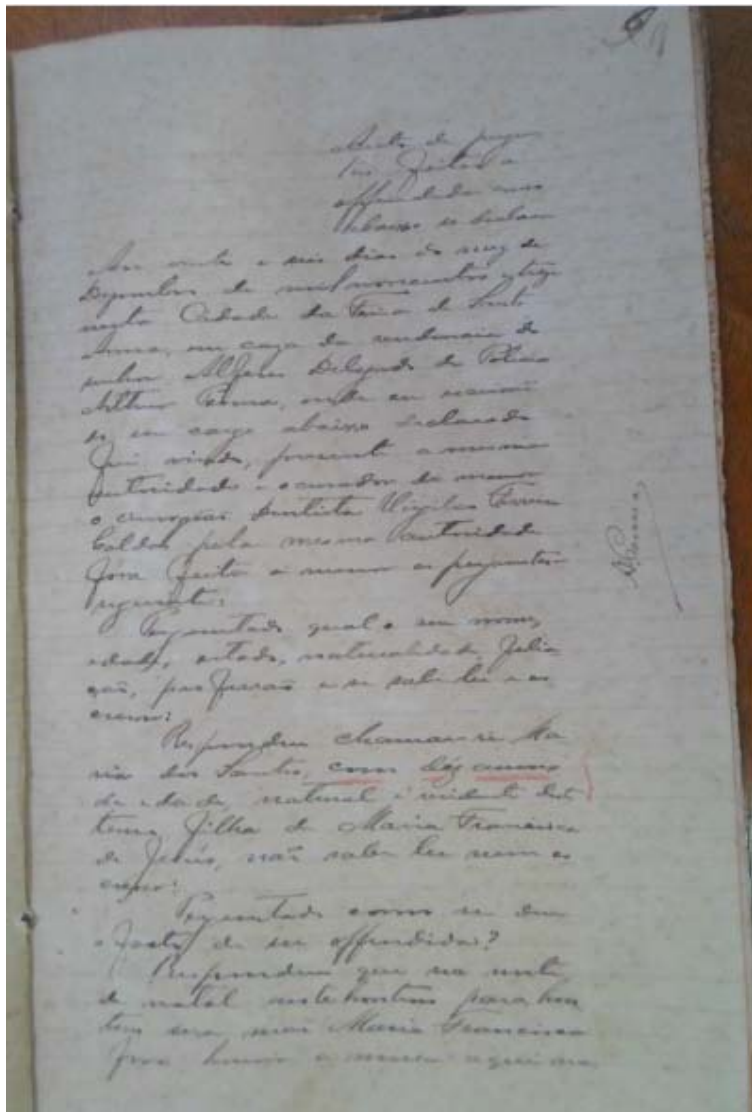 Auto de pergun
tas feitas a
offendida como
abaixo se declara
Aos vinte e seis dias do mez de
Dezembro de mil novecentos e treze
nesta Cidade da Feira de Sant'
Anna, em caza da residencia do
senhor Alferes Delegado de Policia
Arthur Penna, onde eu escrivão
de seu cargo abaixo declarado
fui vindo, presente a mesma
autoridade e o curador da menor
o cirurgião dentista
Caldas pela mesma autoridade
fora feito a menor as perguntas
seguinte:
Perguntado qual o seu nome,
edade, estado, naturalidade, filia
ção, profissão e se sabe ler e es
crever:
Respondeu chamar-se Ma
ria dos Santos, com dez annos
de edade, natural e residente deste
termo, filha de Maria Francisca
de Jesús, não sabe ler nem es
crever:
Perguntado como se deu
o facto de ser offendida?
Respondeu que na noite
de natal antehontem para hon
tem sua mãi Maria Francisca
fora
A Penna